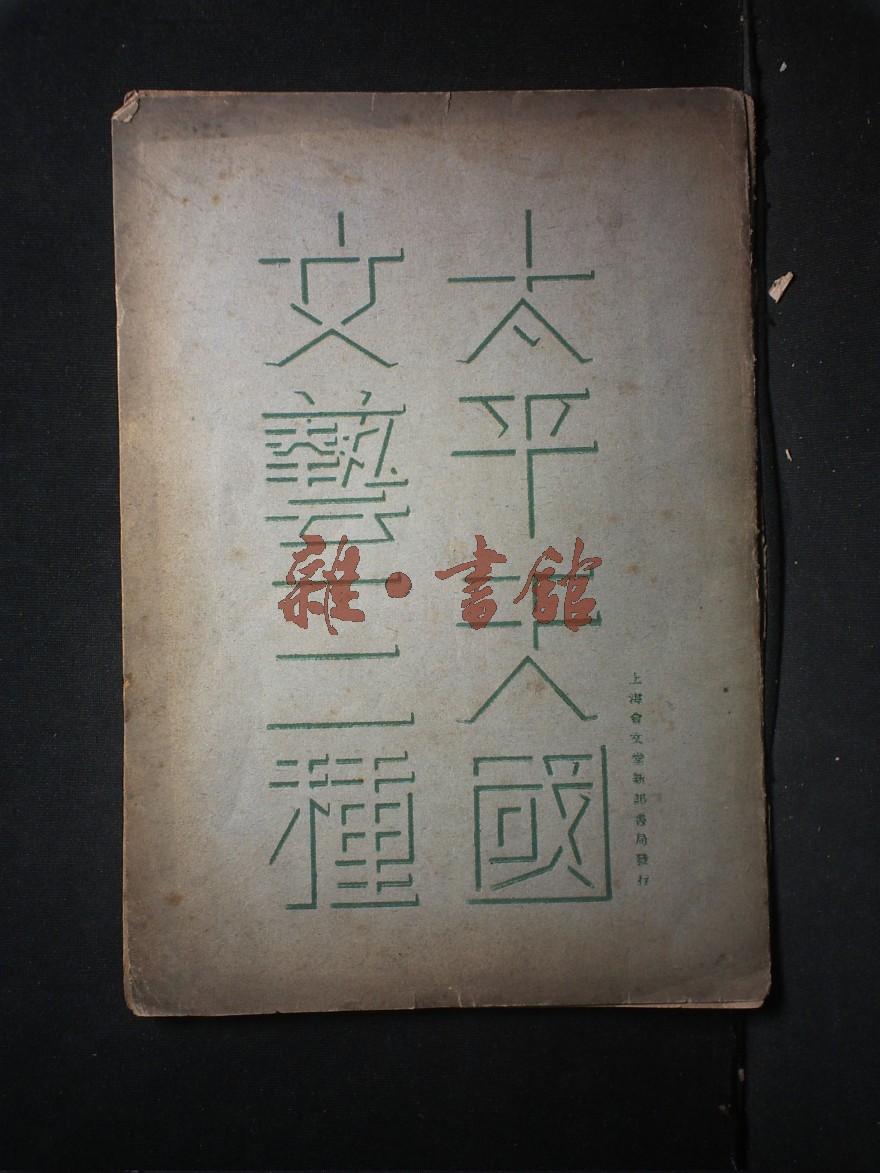 上海會文堂新記書局發行
太平天國
文藝三種
雜·書館